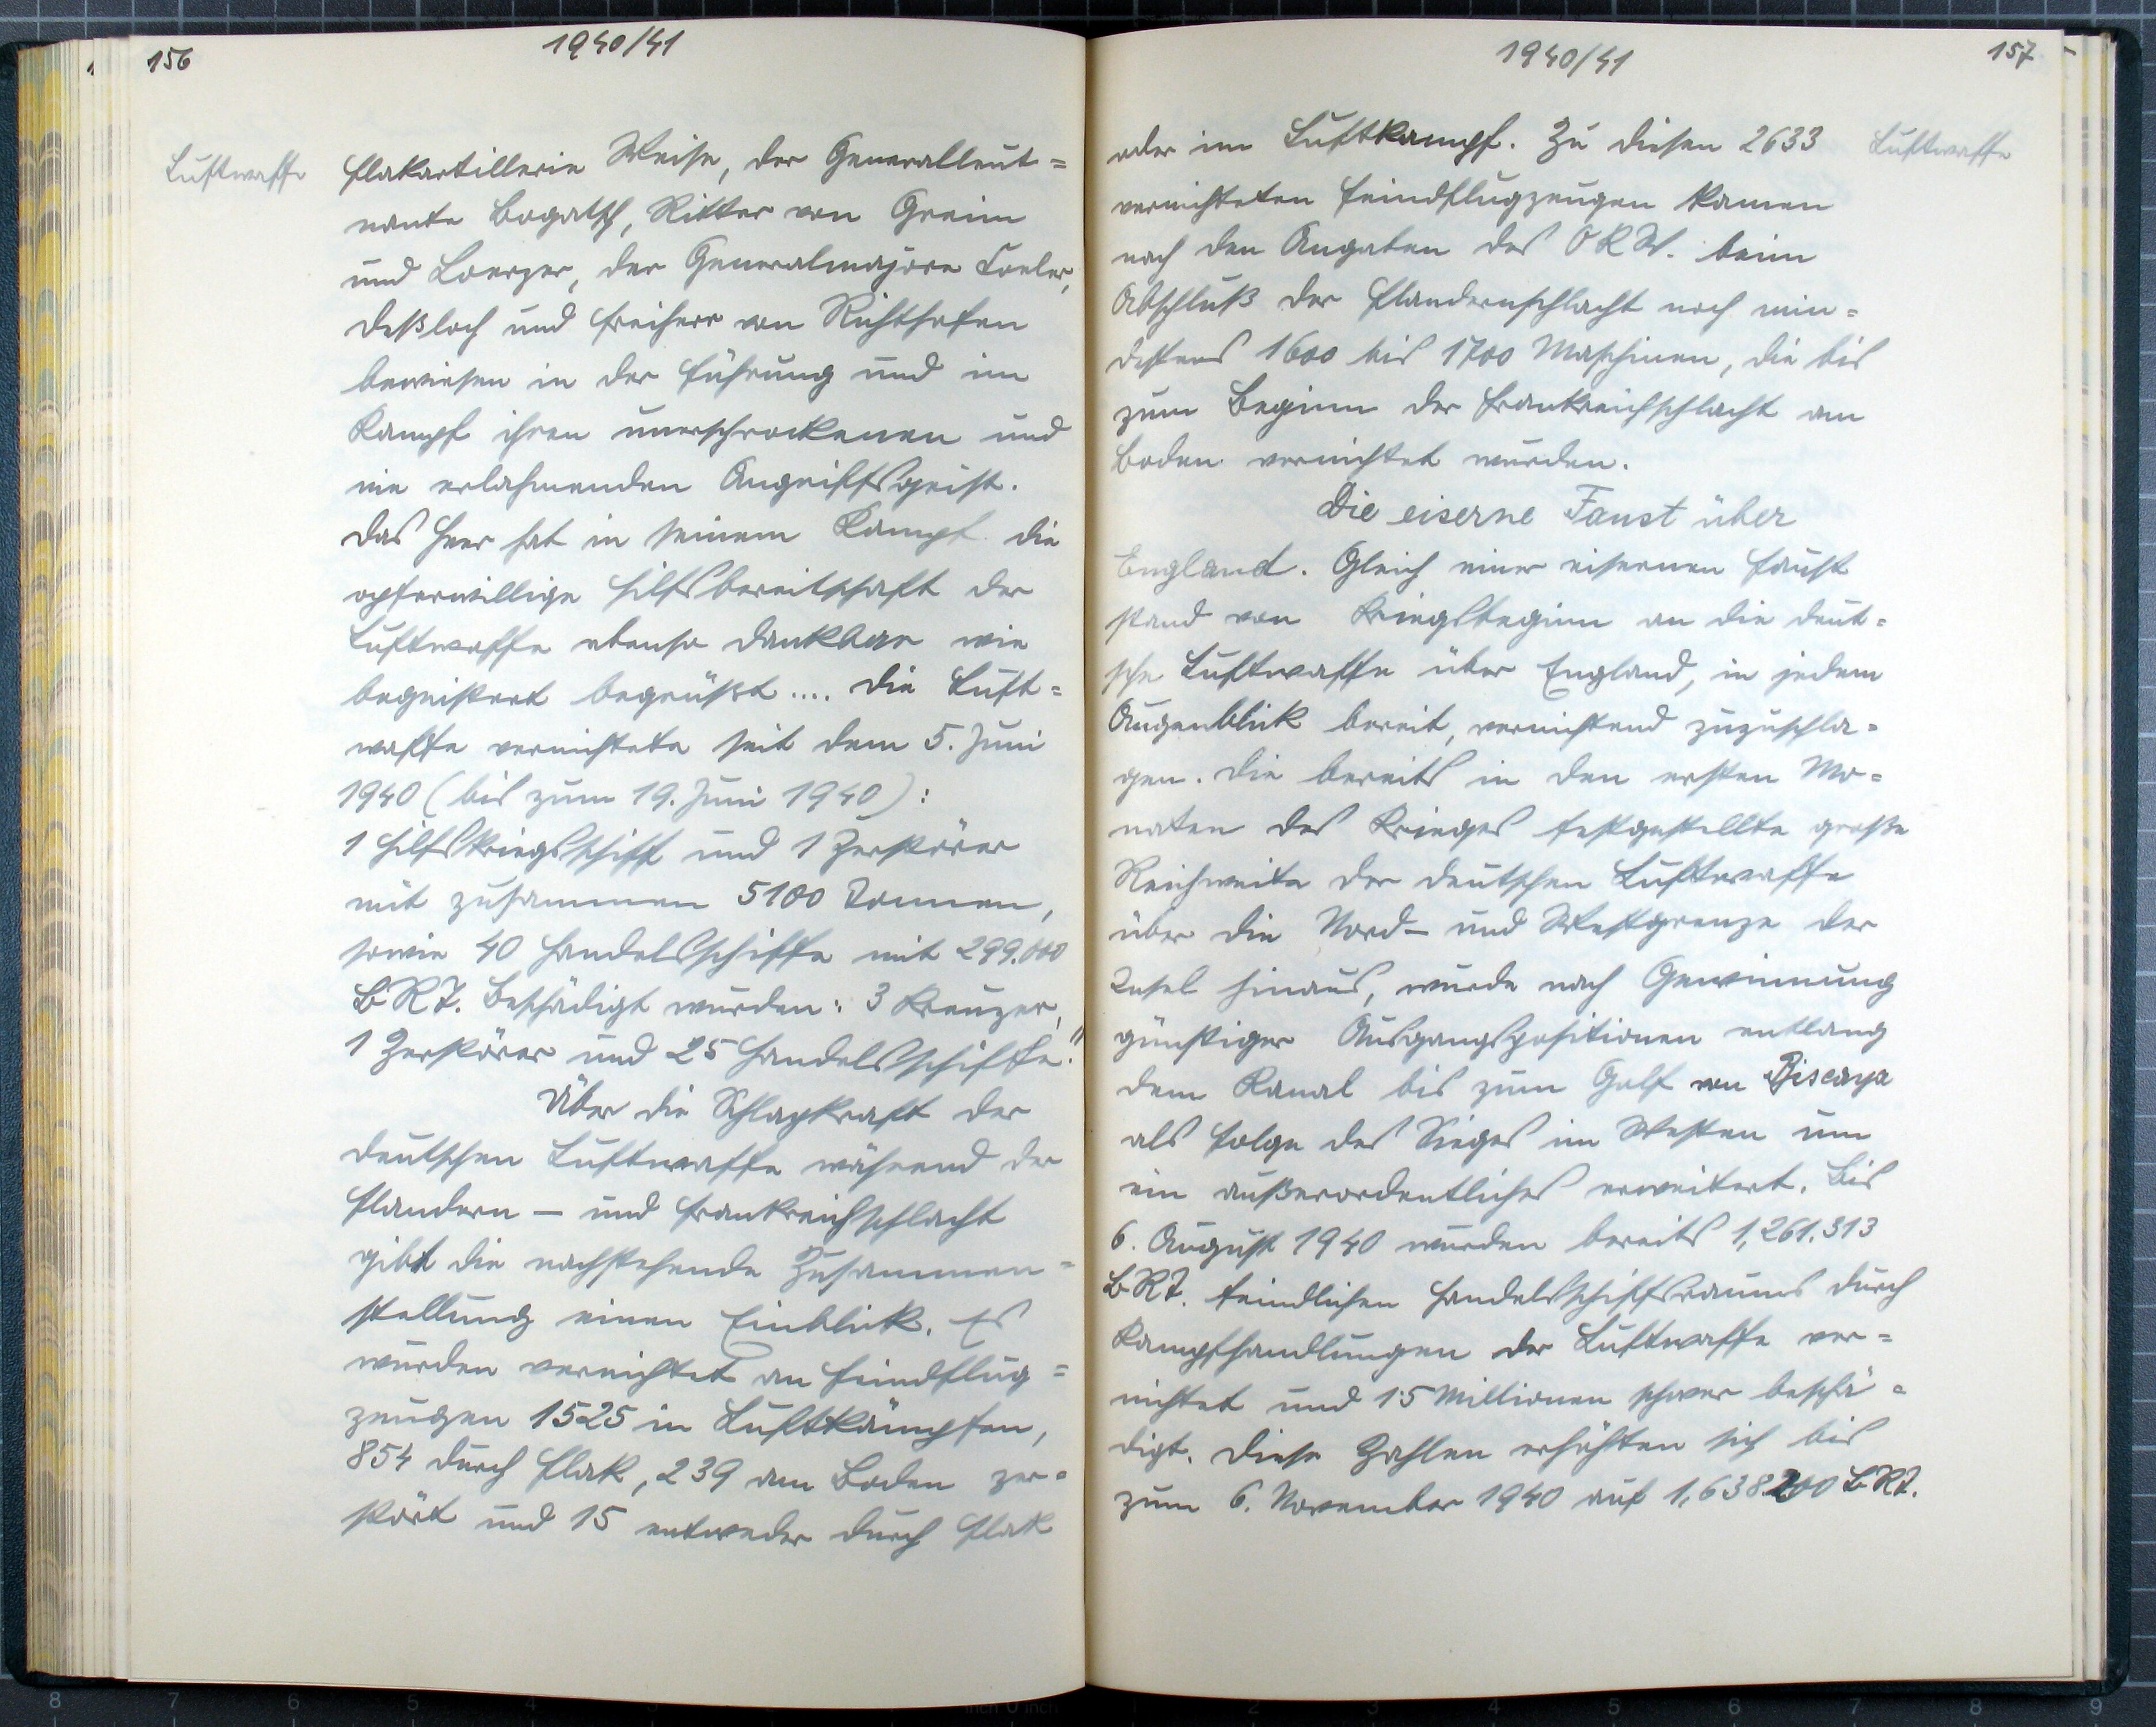 156
1940/41
Luftwaffe
Flakartillerie Weise, der Generalleut=
nante Bogatsch, Ritter von Greim
und Loerzer, der Generalmajore Coeler,
Deßloch und Freiherr von Richthofen
bewiesen in der Führung und im
Kampf ihren unerschrockenen und
nie erlahmenden Angriffsgeist.
Das Heer hat in seinem Kampf die
opferwillige Hilfsbereitschaft der
Luftwaffe ebenso dankbar wie
begeistert begrüßt.... Die Luft=
waffe vernichtete seit dem 5. Juni
1940 (bis zum 19. Juni 1940):
1 Hilfskriegsschiff und 1 Zerstörer
mit zusammen 5100 Tonnen,
sowie 40 Handelsschiffe mit 299.000
BRT. Beschädigt wurden: 3 Kreuzer,
1 Zerstörer und 25 Handelsschiffe."
Über die Schlagkraft der
deutschen Luftwaffe während der
Flandern- und Frankreichschlacht
gibt die nachstehende Zusammen=
stellung einen Einblick. Es
wurden vernichtet an Feindflug=
zeugen 1525 in Luftkämpfen,
854 durch Flak, 239 am Boden zer=
stört und 15 entweder durch Flak
1940/41
157
Luftwaffe
oder im Luftkampf. Zu diesen 2633
vernichteten Feindflugzeugen kamen
nach den Angaben des OKW. beim
Abschluß der Flandernschlacht noch min=
destens 1600 bis 1700 Maschinen, die bis
zum Beginn der Frankreichschlacht am
Boden vernichtet wurden.
Die eiserne Faust über
England. Gleich einer eisernen Faust
stand von Kriegsbeginn an die deut=
sche Luftwaffe über England, in jedem
Augenblick bereit, vernichtend zuzuschla=
gen. Die bereits in den ersten Mo=
naten des Krieges festgestellte große
Reichweite der deutschen Luftwaffe
über die Nord- und Westgrenze der
Insel hinaus, wurde nach Gewinnung
günstiger Ausgangspositionen entlang
dem Kanal bis zum Golf von Biscaya
als Folge des Sieges im Westen um
ein außerordentliches erweitert. Bis
6. August 1940 wurden bereits 1,261.313
BRT. feindlichen Handelsschiffsraums durch
Kampfhandlungen der Luftwaffe ver=
nichtet und 1·5 Millionen schwer beschä=
digt. Diese Zahlen erhöhten sich bis
zum 6. November 1940 auf 1,638200 BRT.